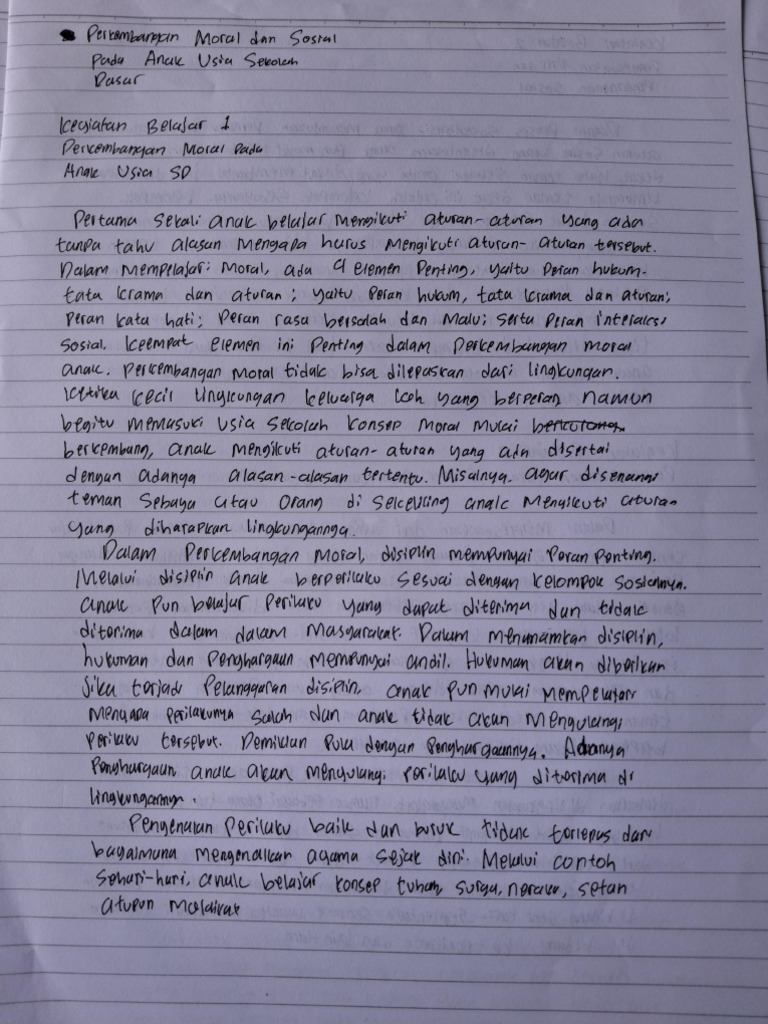 Perkembangan Moral dan Sosial
Pada Anak Usia Sekolah
Dasar
Kegiatan Belajar 1
Perkembangan Moral pada
Anak Usia SD
Pertama sekali anak belajar mengikuti aturan-aturan yang ada
tanpa tahu alasan mengapa harus mengikuti aturan-aturan tersebut.
Dalam mempelajari moral, ada 4 elemen penting, yaitu peran hukum-
tata krama dan aturan; yaitu peran hukum, tata krama dan aturan;
peran kata hati; peran rasa bersalah dan malu; serta peran interaksi
sosial. Keempat elemen ini penting dalam perkembangan moral
anak. Perkembangan moral tidak bisa dilepaskan dari lingkungan.
Ketika kecil lingkungan keluarga lah yang berperan namun
begitu memasuki usia sekolah konsep moral mulai
berkembang, anak mengikuti aturan-aturan yang ada disertai
dengan adanya alasan-alasan tertentu. Misalnya. agar disenangi
teman sebaya atau orang di sekeliling anak mengikuti aturan
yang diharapkan lingkungannya.
Dalam perkembangan moral, disiplin mempunyai peran penting.
Melalui disiplin anak berperilaku sesuai dengan kelompok sosialnya.
anak pun belajar perilaku yang dapat diterima dan tidak
diterima dalam dalam masyarakat. Dalam menanamkan disiplin,
hukuman dan penghargaan mempunyai andil. Hukuman akan diberikan
jika terjadi pelanggaran disiplin, anak pun mulai mempelajari
mengapa perilakunya salah dan anak tidak akan mengulangi
perilaku tersebut. Demikian pula dengan penghargaannya. Adanya
penghargaan anak akan mengulangi perilaku yang diterima di
lingkungannya.
Pengenalan perilaku baik dan buruk tidak terlepas dari
bagaimana mengenalkan agama sejak dini. Melalui contoh
sehari-hari, anak belajar konsep tuhan, surga, neraka, setan
ataupun malaikat